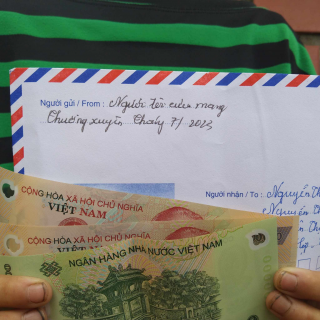 Người gửi / From : Người tôi cưu mang
Chương xuyện Tháng 7/2023
Người nhận / To : Nguyễn
Nguyễn
CỘNG HÒA XÃ HỘI CHỦ NGHĨA
VIỆT NAM
CỘNG HÒA XÃ HỘI CHỦ NGHĨA
VIỆT NAM
NGÂN HÀNG NHÀ NƯỚC VIỆT NAM